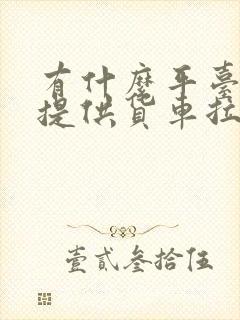 有什麼平臺
提供貨車拉
壹貳叁拾伍